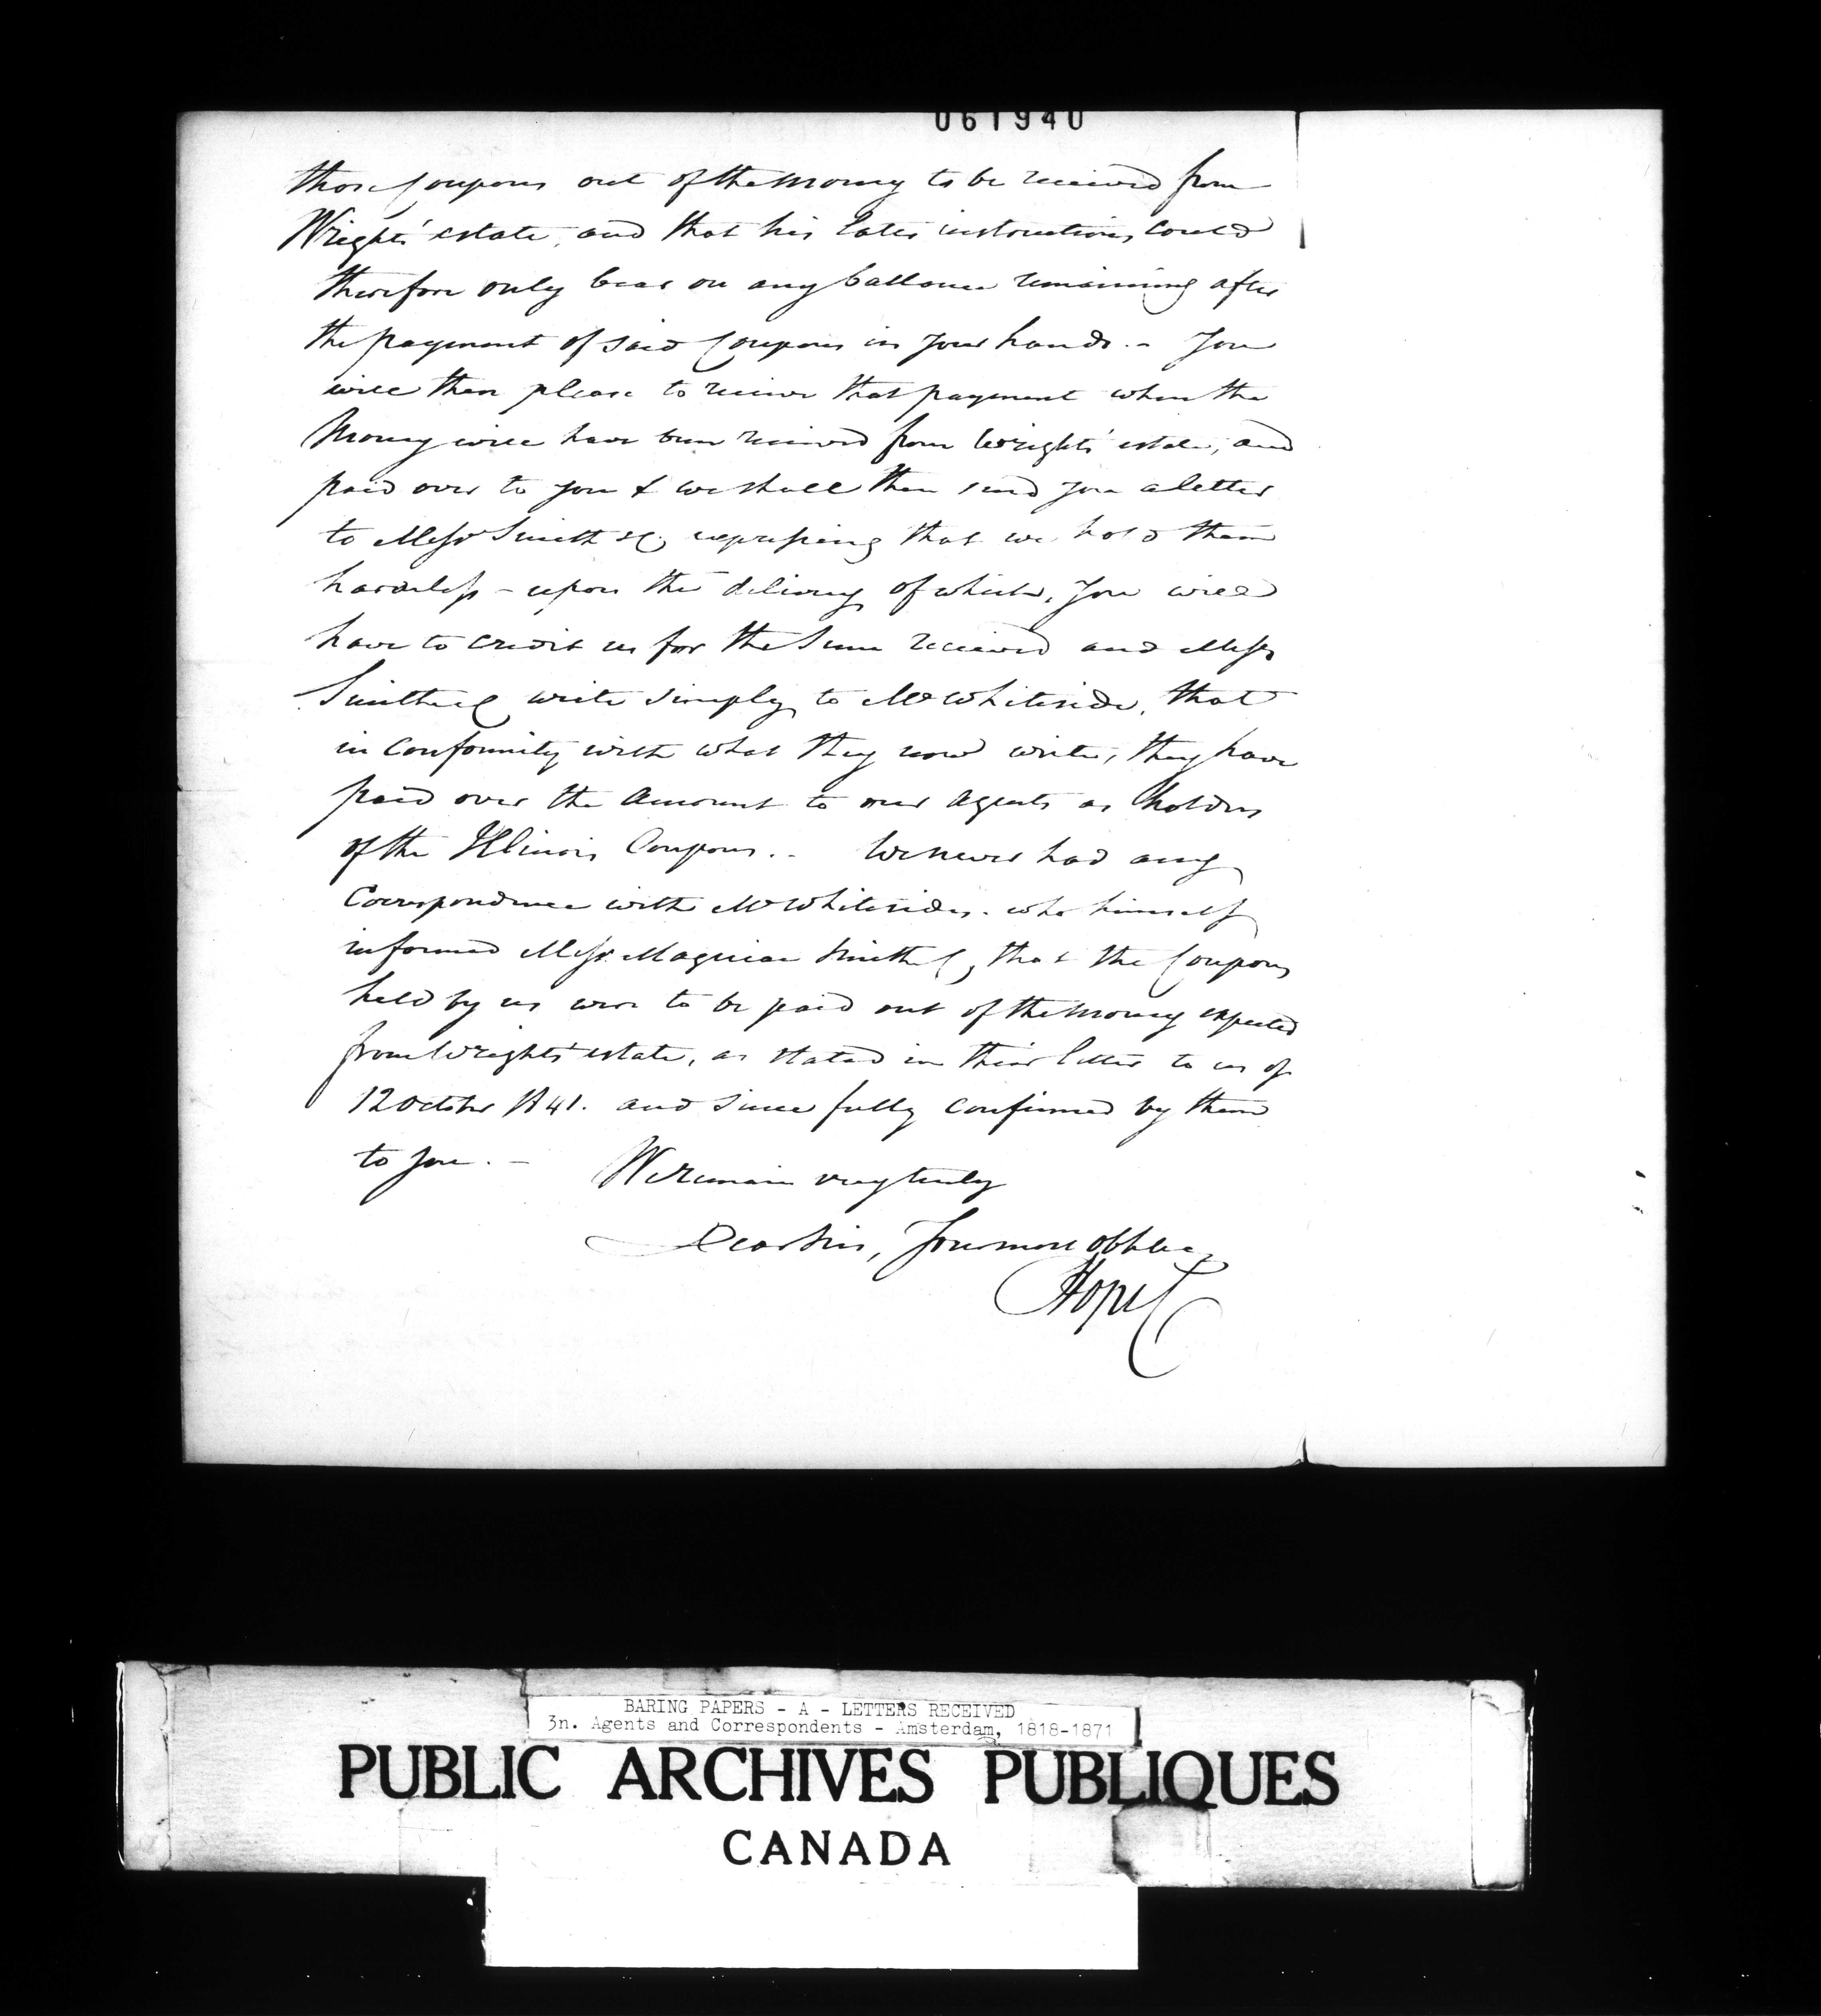 061940
those Coupons out of the money to be received from
Wrights' estate, and that his later instructions could
therefore only bear on any ballance remaining after
the payment of said Coupons in your hands. - You
will then please to receive that payment when the
Money will have been received from Wrights' estate, and
paid over to you & we shall then send you a letter
to Messr Smith &C, expressing that we hold them
harmless - upon the delivery of which, you will
have to credit us for the Sum received and Messrs
Smith &C write simply to Mr Whiteside, that
in Conformity with what they now write, they have
paid over the Amount to our Agents as holders
of the Illinois Coupons. - We never had any
Correspondence with Mr Whitesides. who himself
informed Messr. Magniac Smith &C, that the Coupons
held by us were to be paid out of the money expected
from Wrights' estate, as stated in their letter to us of
12 October 1841. and since fully confirmed by them
to you. - We remain very truly
Dear Sirs, Your most
Hope &C
BARING PAPERS - A - LETTERS RECEIVED
3n. Agents and Correspondents - Amsterdam, 1818-1871
PUBLIC ARCHIVES PUBLIQUES
CANADA